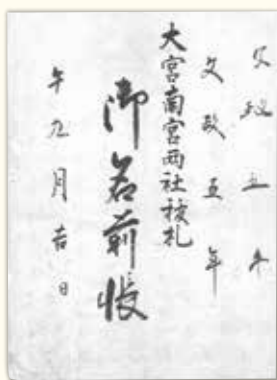 文政五年
文政五年
大宮南宮両社祓札
御名前帳
午九月吉日